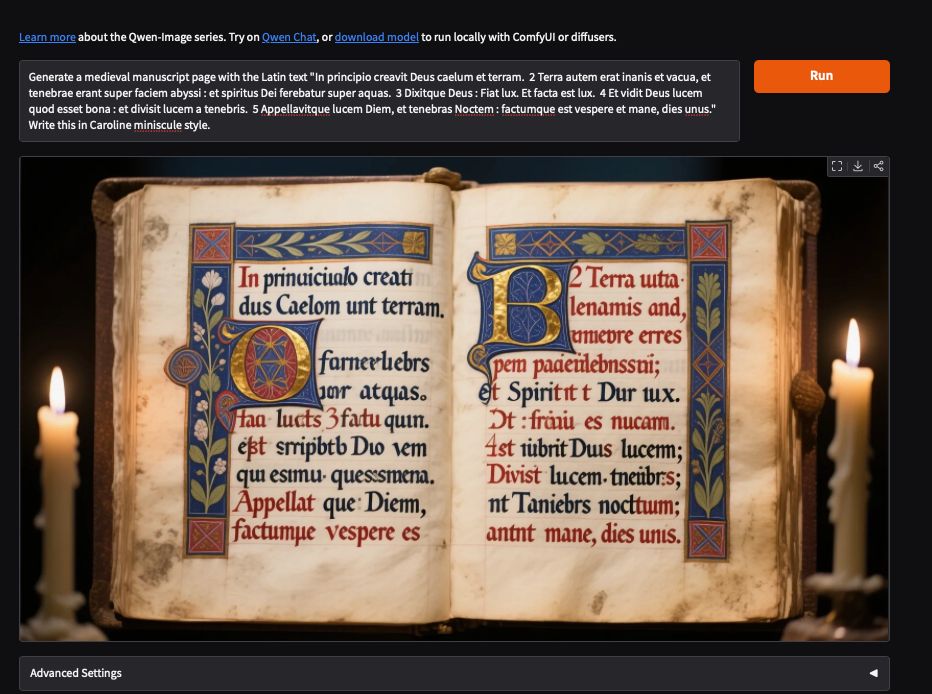 Learn more about the Qwen-Image series. Try on Qwen Chat, or download model to run locally with ComfyUI or diffusers.
Generate a medieval manuscript page with the Latin text "In principio creavit Deus caelum et terram. 2 Terra autem erat inanis et vacua, et
tenebrae erant super faciem abyssi : et spiritus Dei ferebatur super aquas. 3 Dixitque Deus : Fiat lux. Et facta est lux. 4 Et vidit Deus lucem
quod esset bona : et divisit lucem a tenebris. 5 Appellavitque lucem Diem, et tenebras Noctem : factumque est vespere et mane, dies unus."
Write this in Caroline miniscule style.
Run
In creati
dus Caelom unt terram.
O
atqas.
lucts 3 fatu quin.
Duo vem
qui esmu. quessmena.
Appellat que Diem,
vespere es
B
2 Terra
lenamis and,
erres
pem
et Dur lux.
es nucam.
lucem;
Divist lucem.
nt Taniebrs
mane, dies unis.
Advanced Settings